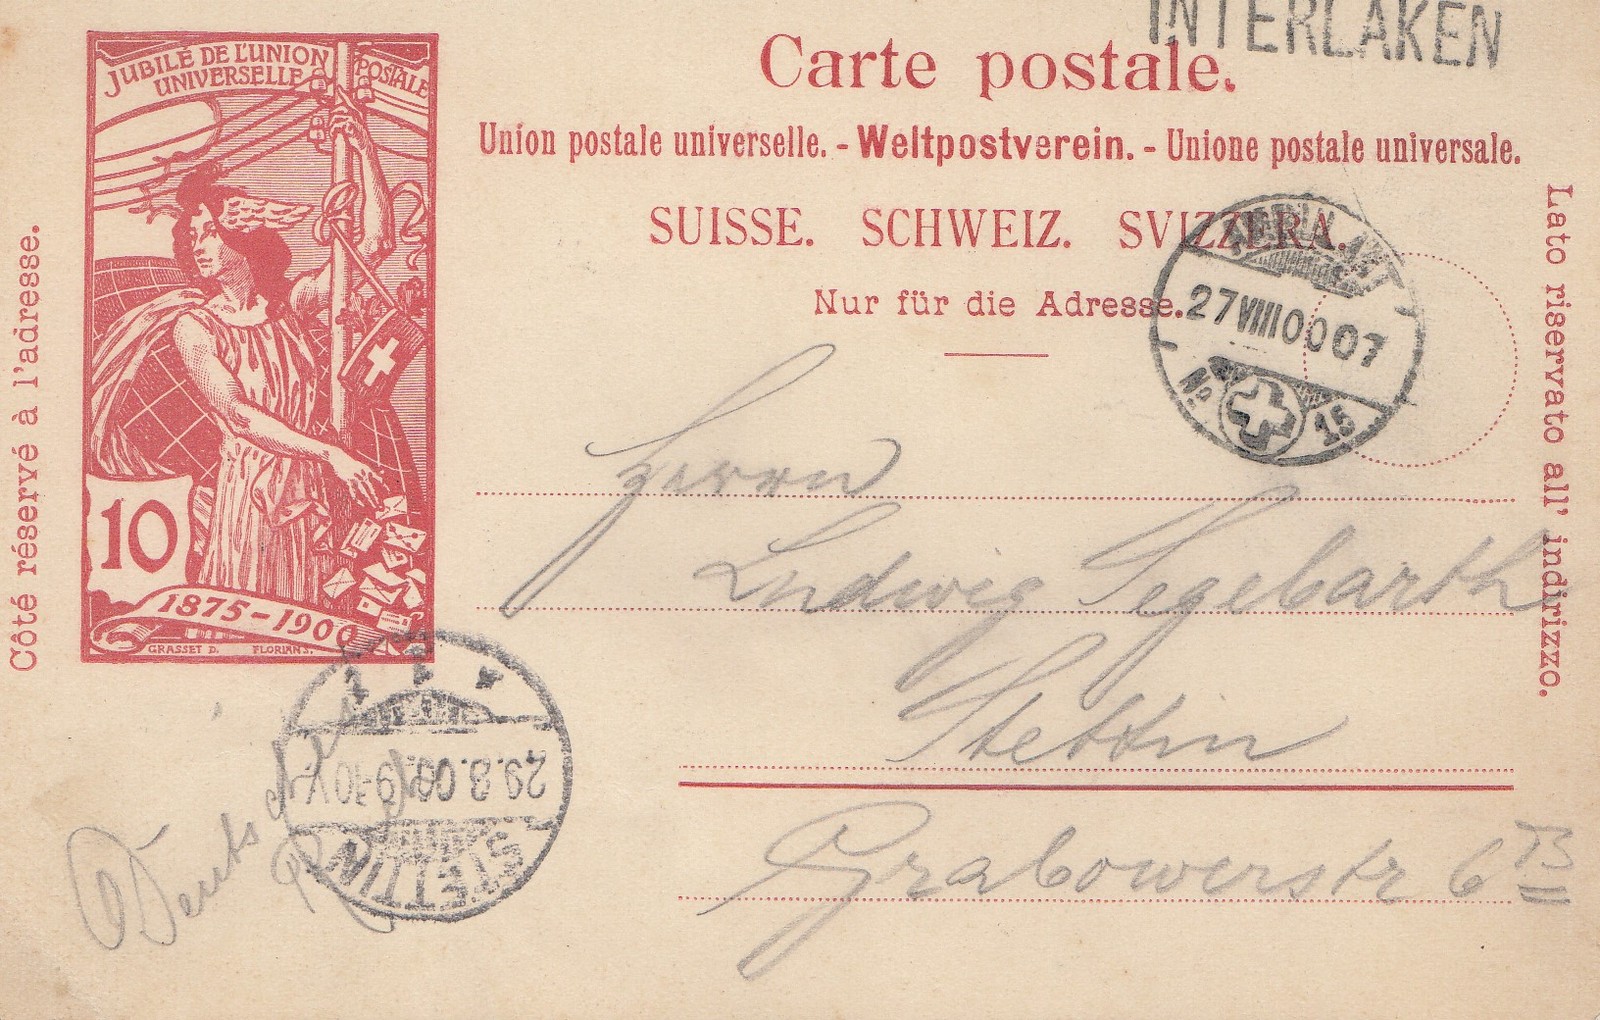 INTERLAKEN
JUBILÉ DE L'UNION
POSTALE
UNIVERSELLE
Carte postale.
Union postale universelle. - Weltpostverein. - Unione postale universale.
SUISSE. SCHWEIZ. SVIZZERA.
Nur für die Adresse.
27 VIII 00 07
No 15
Côté réservé à l'adresse.
Lato riservato all' indirizzo.
Herrn
Ludwig Segebarth
Stettin
Grabowerstr 6
10
1875-1900
GRASSET D. FLORIAN S.
29.8.00. 9-10V.
STETTIN